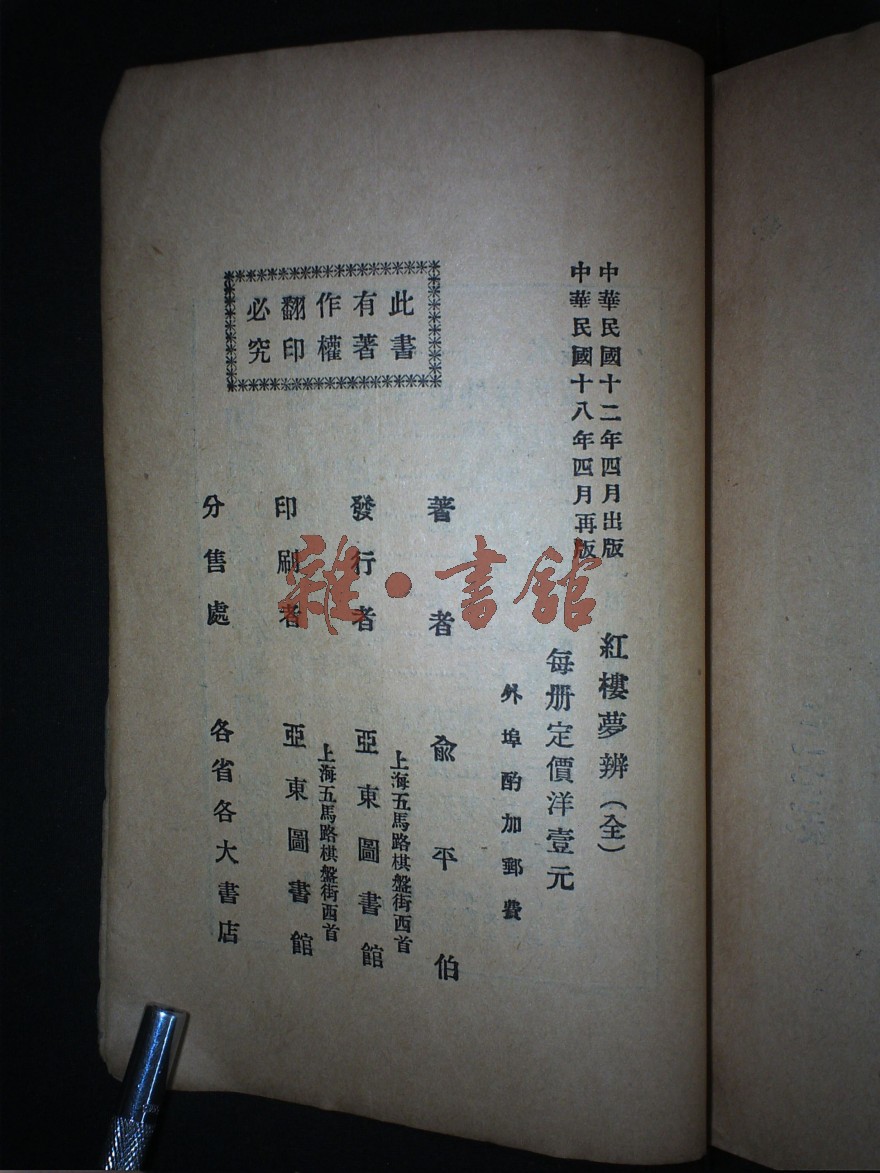 中華民國十二年四月出版
中華民國十八年四月再版
紅樓夢辨（全）
每册定價洋壹元
外埠酌加郵費
著者 俞平伯
上海五馬路棋盤街西首
發行者 亞東圖書館
上海五馬路棋盤街西首
印刷者 亞東圖書館
分售處 各省各大書店
此書
有著
作權
翻印
必究
雜·書館